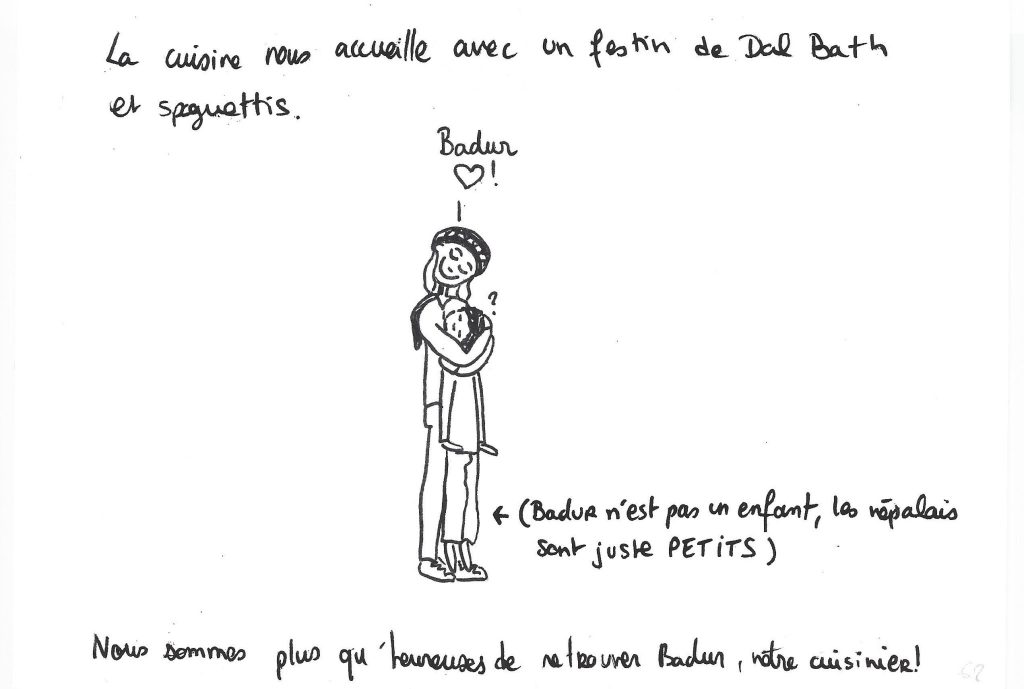 La cuisine nous accueille avec un festin de Dal Bath
et spaguettis.
Badur
♡!
?
← (Badur n'est pas un enfant, les népalais
sont juste PETITS)
Nous sommes plus qu'heureuses de retrouver Badur, notre cuisinier!
62